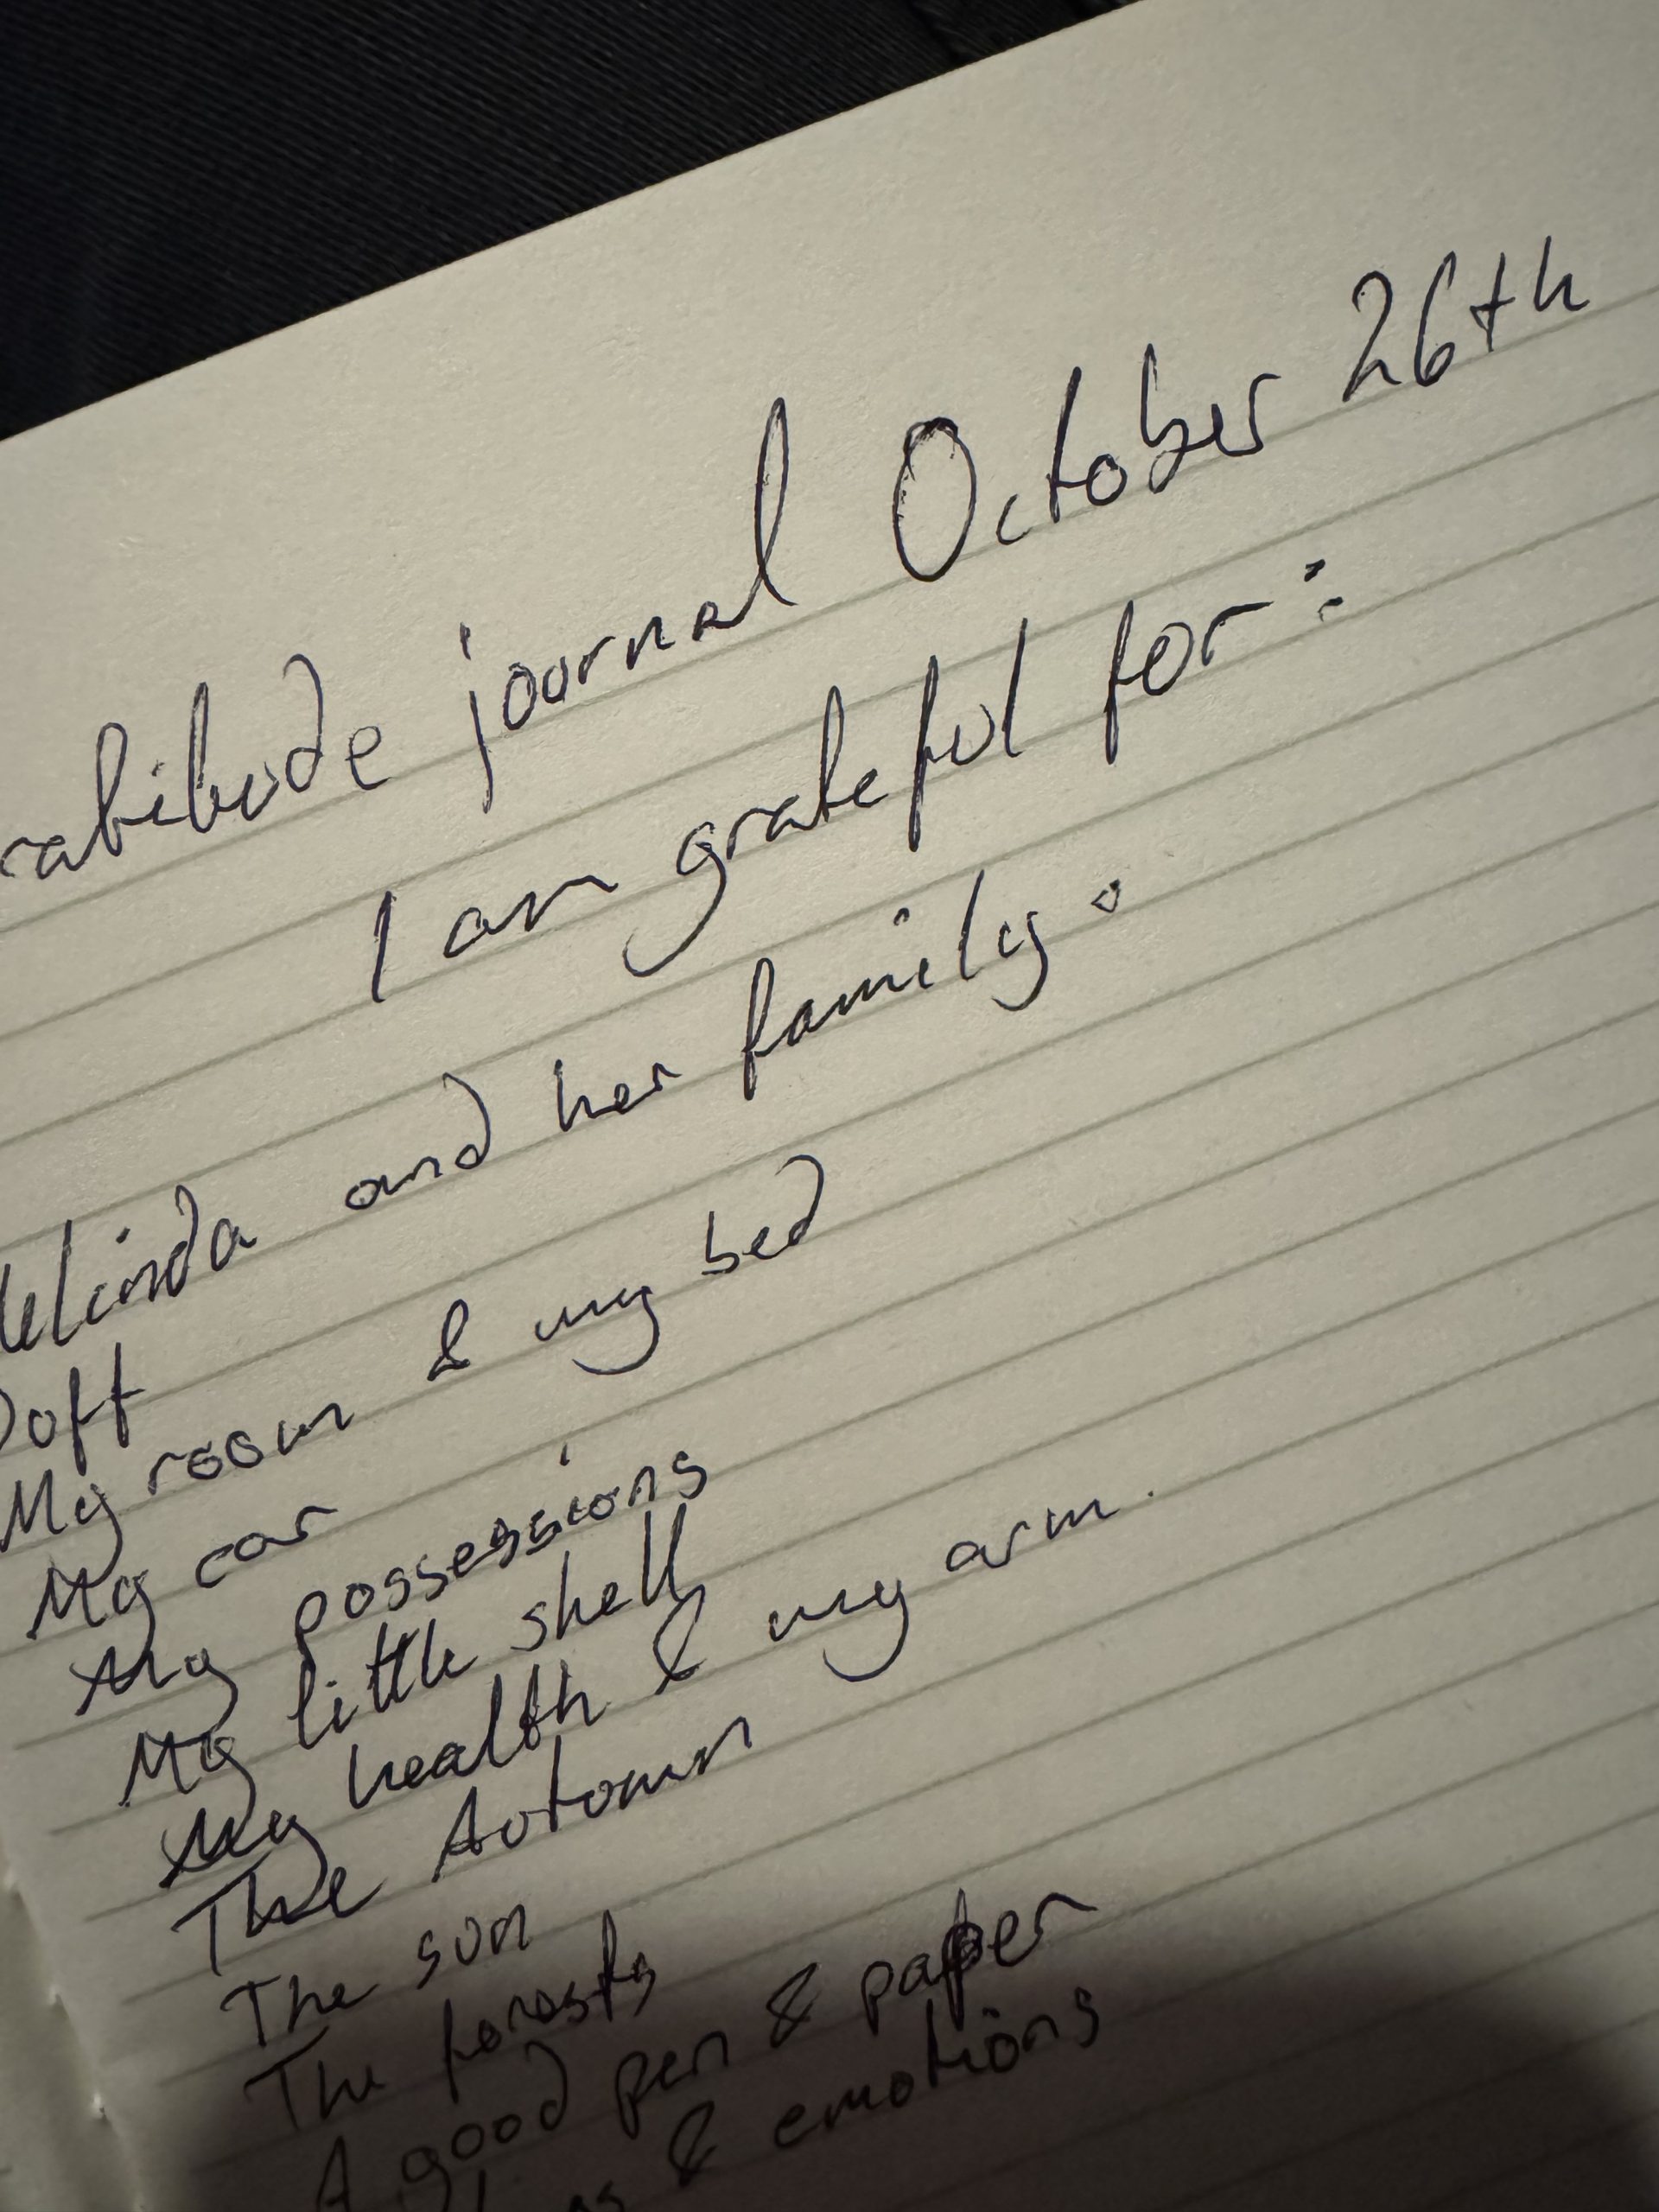 ratitude journal October 26th
I am grateful for:
and her family.
My room & my bed
My car
My possessions
My little shell
My health & my arm.
The Autumn
The sun
The forests
A good pen & paper
& emotions